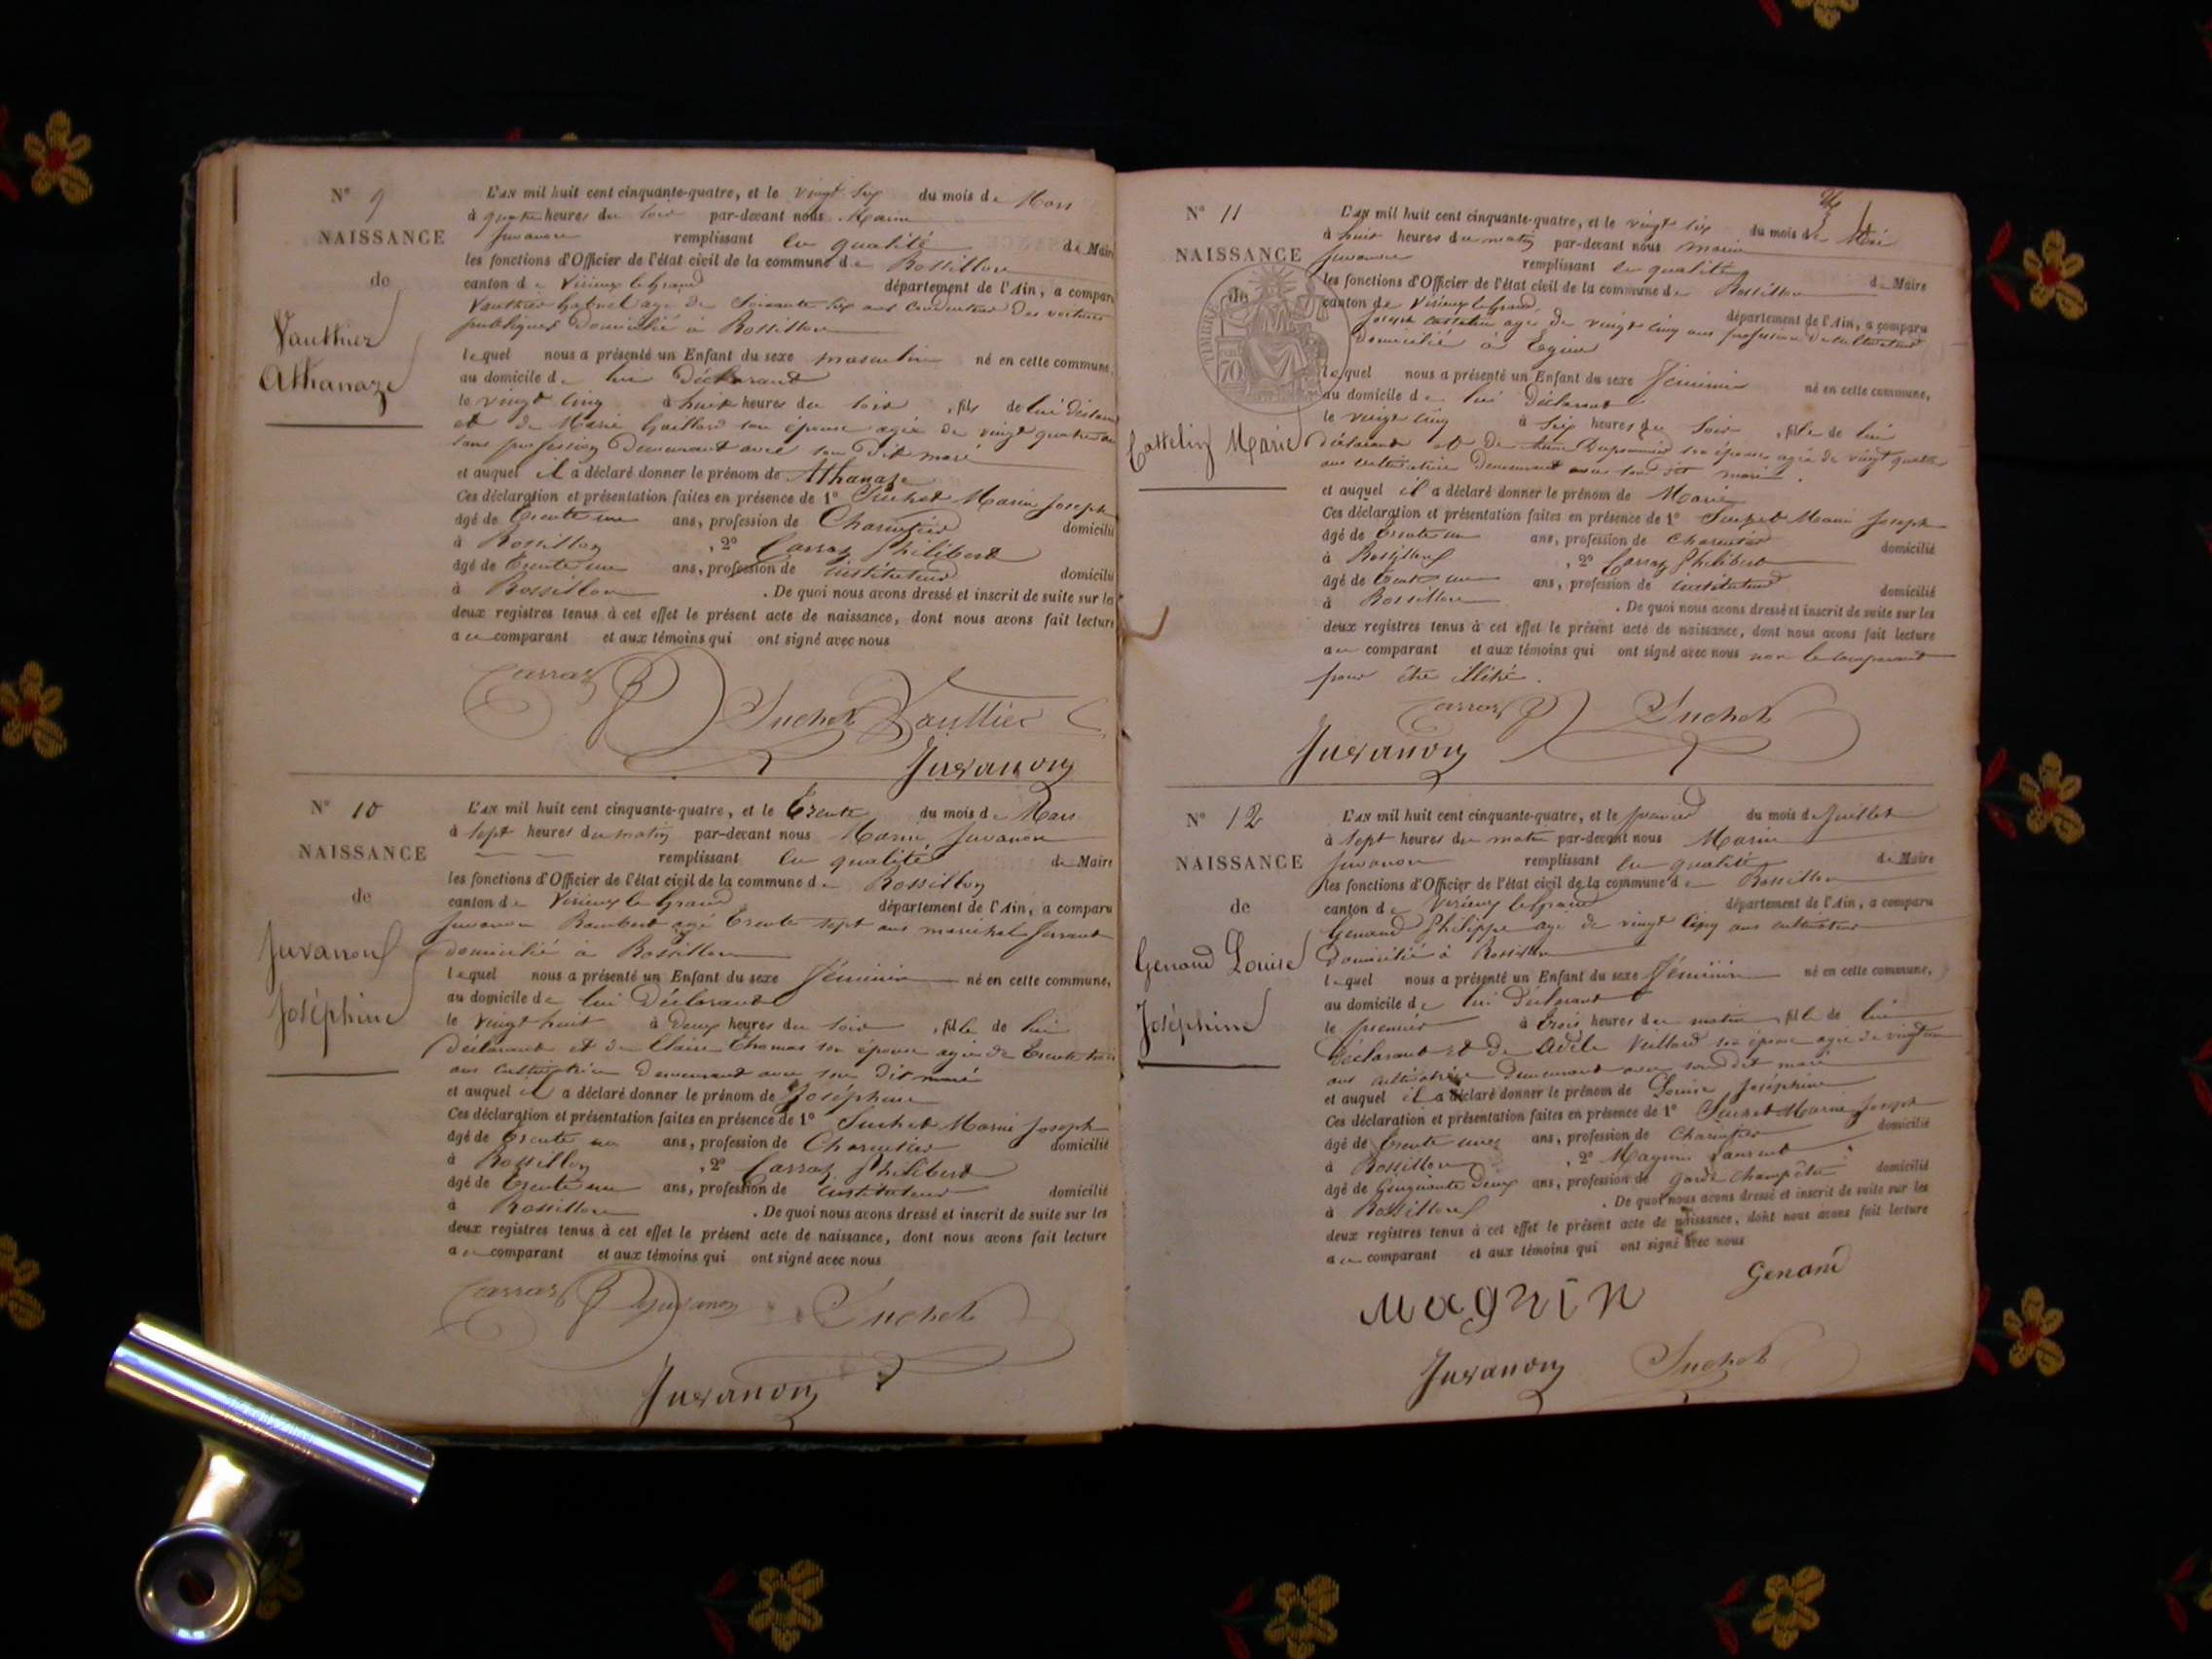 N° 9
NAISSANCE
de
Vauthier
Athanaze
L'AN mil huit cent cinquante-quatre, et le vingt six du mois de Mars
à quatre heures du soir par-devant nous Marin
Juvanon remplissant en qualité de Maire
les fonctions d'Officier de l'état civil de la commune de Rossillon
canton de Virieux le Grand département de l'Ain, a comparu
Vauthier Gabriel agé de soixante six ans conducteur des voitures
publiques domicilié à Rossillon
lequel nous a présenté un Enfant du sexe masculin né en cette commune,
au domicile de lui Déclarant
le vingt cinq à huit heures du soir, fils de lui déclarant
et de Marie Gaillard son épouse agée de vingt quatre ans
sans profession demeurant avec son dit mari
et auquel il a déclaré donner le prénom de Athanaze
Ces déclaration et présentation faites en présence de 1° Suchet Marin Joseph
âgé de trente un ans, profession de Charentier domicilié
à Rossillon, 2° Carraz Philibert
âgé de trente un ans, profession de instituteur domicilié
à Rossillon. De quoi nous avons dressé et inscrit de suite sur les
deux registres tenus à cet effet le présent acte de naissance, dont nous avons fait lecture
au comparant et aux témoins qui ont signé avec nous
Carraz Suchet Vauthier
Juvanon
N° 10
NAISSANCE
de
Juvanon
Joséphine
L'AN mil huit cent cinquante-quatre, et le trente du mois de Mars
à sept heures du matin par-devant nous Marin Juvanon
remplissant en qualité de Maire
les fonctions d'Officier de l'état civil de la commune de Rossillon
canton de Virieux le Grand département de l'Ain, a comparu
Juvanon Rambert agé trente sept ans maréchal ferrant
domicilié à Rossillon
lequel nous a présenté un Enfant du sexe féminin né en cette commune,
au domicile de lui Déclarant
le vingt huit à deux heures du soir, fille de lui
déclarant et de Claire Thomas son épouse agée de trente trois
ans cultivatrice demeurant avec son dit mari
et auquel il a déclaré donner le prénom de Joséphine
Ces déclaration et présentation faites en présence de 1° Suchet Marin Joseph
âgé de trente un ans, profession de Charentier domicilié
à Rossillon, 2° Carraz Philibert
âgé de trente un ans, profession de instituteur domicilié
à Rossillon. De quoi nous avons dressé et inscrit de suite sur les
deux registres tenus à cet effet le présent acte de naissance, dont nous avons fait lecture
au comparant et aux témoins qui ont signé avec nous
Carraz Juvanon Suchet
Juvanon
N° 11
NAISSANCE
de
TIMBRE
70
Castelin Marie
L'AN mil huit cent cinquante-quatre, et le vingt six du mois de Mai
à huit heures du matin par-devant nous Marin
Juvanon remplissant en qualité de Maire
les fonctions d'Officier de l'état civil de la commune de Rossillon
canton de Virieux le Grand département de l'Ain, a comparu
Joseph Castelin agé de vingt cinq ans profession de cultivateur
domicilié à Egieu
lequel nous a présenté un Enfant du sexe féminin né en cette commune,
au domicile de lui Déclarant
le vingt cinq à six heures du soir, fille de lui
déclarant et de son épouse agée de vingt quatre
ans cultivatrice demeurant avec son dit mari.
et auquel il a déclaré donner le prénom de Marie
Ces déclaration et présentation faites en présence de 1° Suchet Marin Joseph
âgé de trente un ans, profession de Charentier domicilié
à Rossillon, 2° Carraz Philibert
âgé de trente un ans, profession de instituteur domicilié
à Rossillon. De quoi nous avons dressé et inscrit de suite sur les
deux registres tenus à cet effet le présent acte de naissance, dont nous avons fait lecture
au comparant et aux témoins qui ont signé avec nous non le comparant
pour être illitéré.
Carraz Suchet
Juvanon
N° 12
NAISSANCE
de
Genand Louise
Joséphine
L'AN mil huit cent cinquante-quatre, et le premier du mois de Juillet
à sept heures du matin par-devant nous Marin
Juvanon remplissant en qualité de Maire
les fonctions d'Officier de l'état civil de la commune de Rossillon
canton de Virieux le Grand département de l'Ain, a comparu
Genand Philippe agé de vingt cinq ans cultivateur
domicilié à Rossillon
lequel nous a présenté un Enfant du sexe féminin né en cette commune,
au domicile de lui Déclarant
le premier à trois heures du matin, fille de lui
déclarant et de Adèle Vuillard son épouse agée de vingt un
ans cultivatrice demeurant avec son dit mari
et auquel il a déclaré donner le prénom de Louise Joséphine
Ces déclaration et présentation faites en présence de 1° Suchet Marin Joseph
âgé de trente un ans, profession de Charentier domicilié
à Rossillon, 2° Magnin Laurent
âgé de cinquante deux ans, profession de garde champêtre domicilié
à Rossillon. De quoi nous avons dressé et inscrit de suite sur les
deux registres tenus à cet effet le présent acte de naissance, dont nous avons fait lecture
au comparant et aux témoins qui ont signé avec nous
Genand
Magnin
Juvanon Suchet